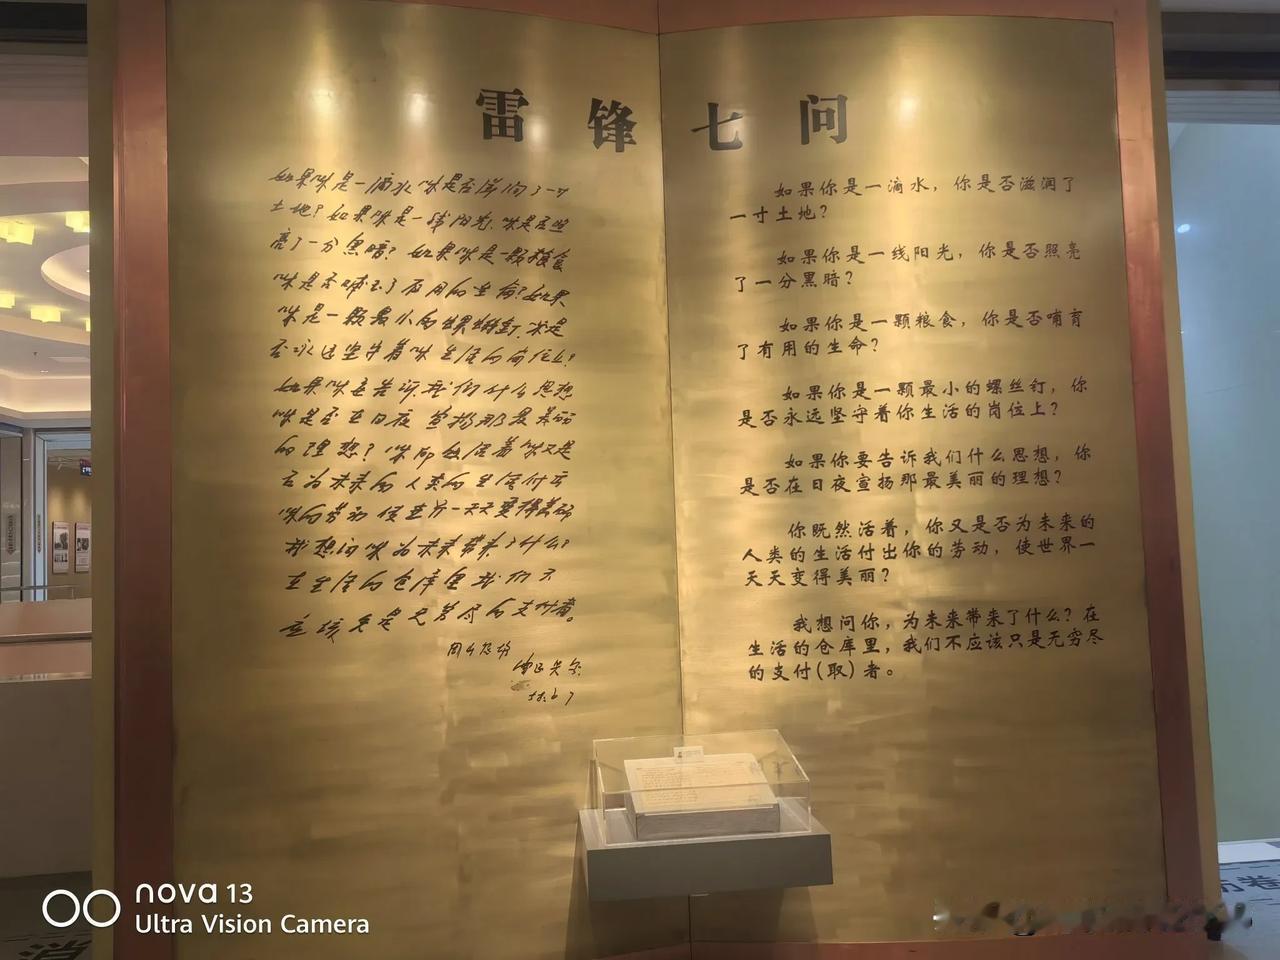 雷锋七问
如果你是一滴水 你是否滋润了一寸
土地？如果你是一线阳光，你是否照
亮了一分黑暗？如果你是一颗粮食
你是否哺育了有用的生命？如果
你是一颗最小的螺丝钉，你是
否永远坚守着你生活的岗位上？
如果你要告诉我们什么思想
你是否在日夜宣扬那最美丽
的理想？你既然活着 你又是
否为未来的人类的生活付出
你的劳动 使世界一天天变得美丽
我想问你 为未来带来了什么？
在生活的仓库里 我们不
应该只是无穷尽的支付者。
如果你是一滴水，你是否滋润了
一寸土地？
如果你是一线阳光，你是否照亮
了一分黑暗？
如果你是一颗粮食，你是否哺育
了有用的生命？
如果你是一颗最小的螺丝钉，你
是否永远坚守着你生活的岗位上？
如果你要告诉我们什么思想，你
是否在日夜宣扬那最美丽的理想？
你既然活着，你又是否为未来的
人类的生活付出你的劳动，使世界一
天天变得美丽？
我想问你，为未来带来了什么？在
生活的仓库里，我们不应该只是无穷尽
的支付(取)者。
nova 13
Ultra Vision Camera